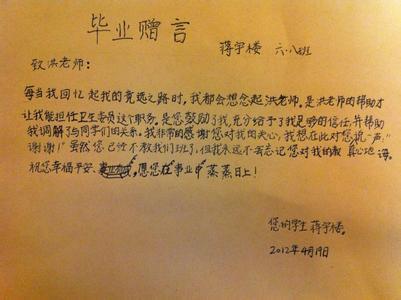 毕业赠言
蒋宇楼 六.八班
致洪老师:
每当我回忆起我的竞选之路时,我都会想念起洪老师,是洪老师的帮助才
让我能担任卫生委员这个职务。是您鼓励了我,充分给予了我足够的信任,并帮助
我调解了与同学们的关系。我非常的感谢您对我的关心,我想在此对您说一声“
谢谢!”虽然您已经不教我们班了,但我永远不会忘记您对我的教 真心地 诲。
祝您幸福平安、愿您在事业中蒸蒸日上!
您的学生 蒋宇楼。
2012年4月19日